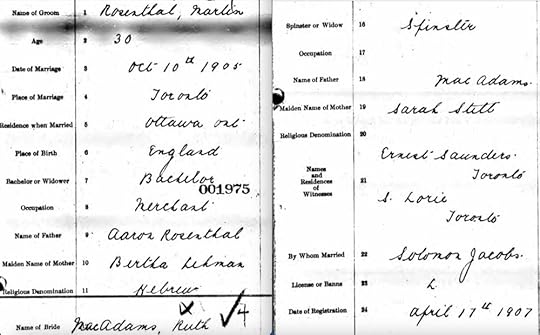 Name of Groom 1 Rosenthal, Martin
Age 2 30
Date of Marriage 3 Oct 10th 1905
Place of Marriage 4 Toronto
Residence when Married 5 Ottawa Ont.
Place of Birth 6 England
Bachelor or Widower 7 Bachelor
001975
Occupation 8 Merchant
Name of Father 9 Aaron Rosenthal
Maiden Name of Mother 10 Bertha Lehman
Religious Denomination 11 Hebrew
Name of Bride MacAdams, Ruth
Spinster or Widow 16 Spinster
Occupation 17
Name of Father 18 Mac Adams.
Maiden Name of Mother 19 Sarah Stitt
Religious Denomination 20
Names and Residences of Witnesses 21
Ernest Saunders.
Toronto
S. Lorie
Toronto
By Whom Married 22 Solomon Jacobs.
License or Banns 23 L
Date of Registration 24 April 17th 1907